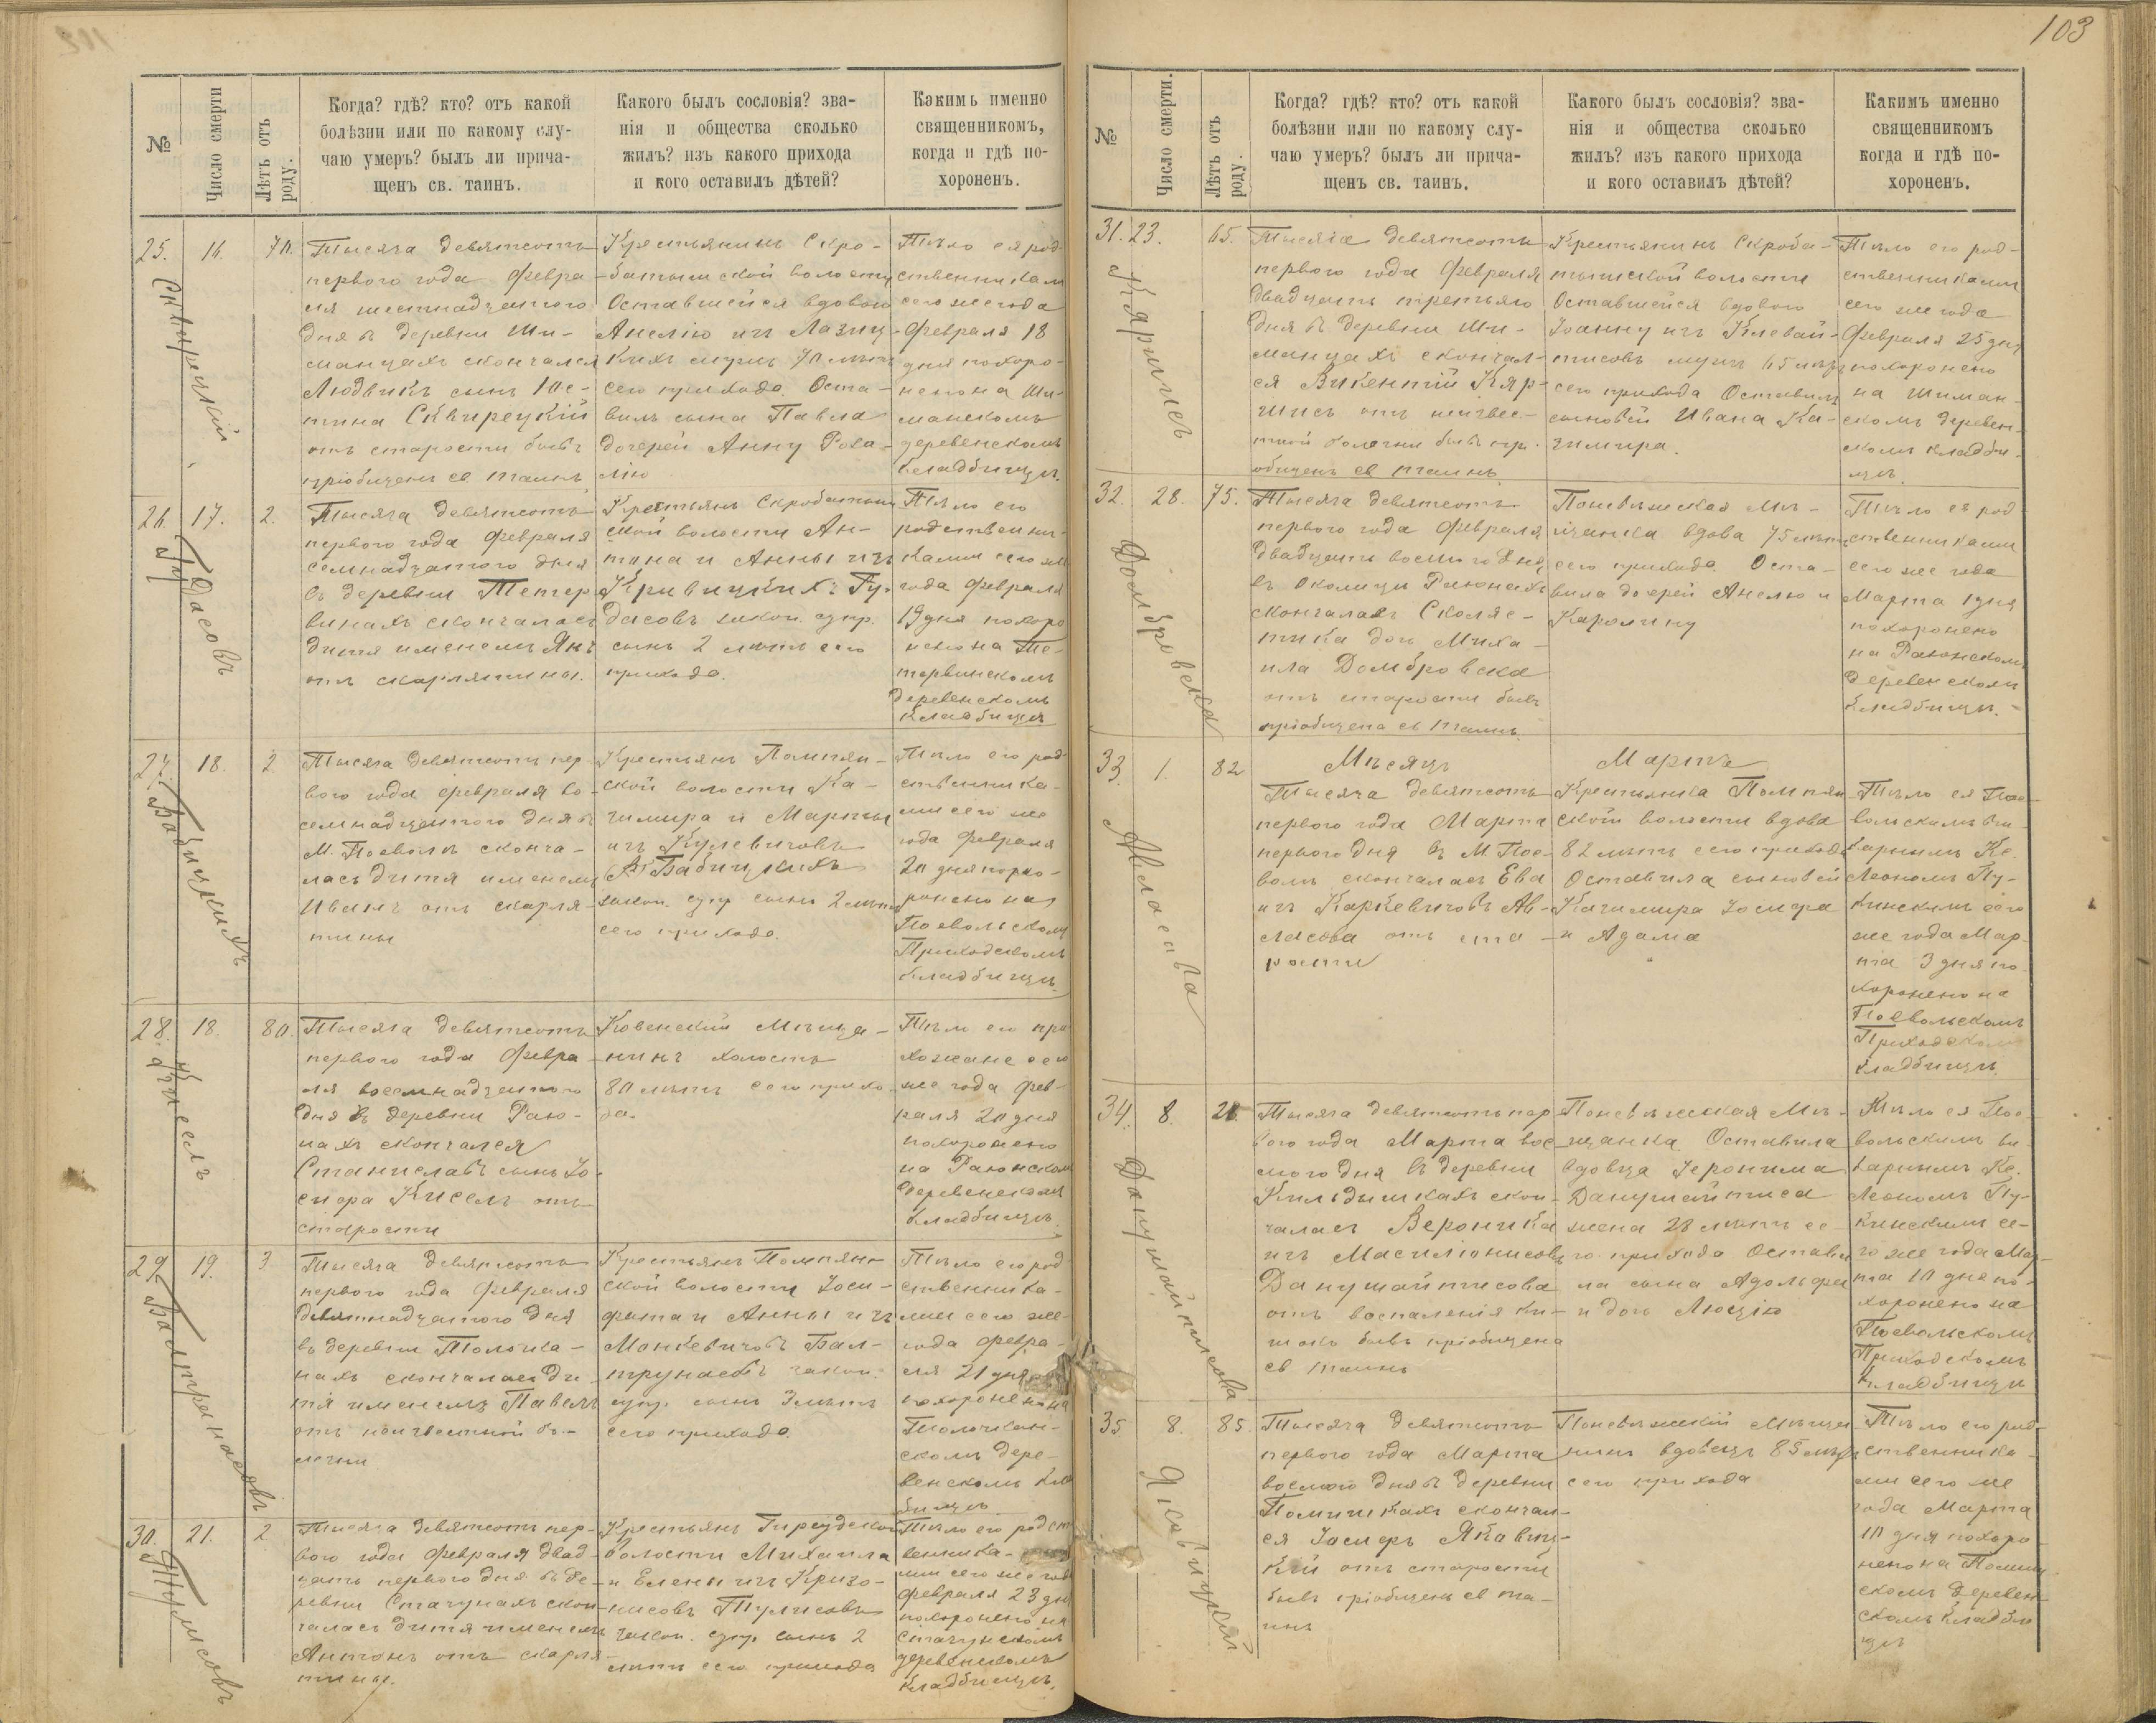 103
№
Число смерти
Лѣтъ отъ роду.
Когда? гдѣ? кто? отъ какой
болѣзни или по какому слу-
чаю умеръ? былъ ли прича-
щенъ св. таинъ.
Какого былъ сословія? зва-
нія и общества сколько
жилъ? изъ какого прихода
и кого оставилъ дѣтей?
Какимъ именно
священникомъ,
когда и гдѣ по-
хороненъ.
25.
Сквирецкій
16.
70.
Тысяча девятсотъ
первого года Февра-
ля шестнадцатого
дня въ деревни Ши-
манцахъ скончался
Людвикъ сынъ Юс-
тина Сквирецкій
отъ старости бывъ
пріобщенъ св таинъ
Крестьянинъ Скро-
батышской волости
Оставшейся вдовою
Анелію изъ Лазиц-
кихъ мужъ 70 лѣтъ
сего прихода. Оста-
вилъ сына Павла
дочерей Анну Роза-
лію
Тѣло ея род-
ственниками
сего же года
Февраля 18
дня похоро-
нено на Ши-
манскомъ
деревенскомъ
кладбищѣ.
26.
Гудасовъ
17.
2.
Тысяча девятсотъ
первого года Февраля
семнадцатого дня
въ деревни Тетер-
винахъ скончалась
дитя именемъ Янъ
отъ скарлятины.
Крестьянъ Скробатыш
ской волости Ан-
тона и Анны изъ
Кривицкихъ Гу-
дасовъ закон. супр.
сынъ 2 лѣтъ сего
прихода.
Тѣло его
родственни-
ками сего же
года Февраля
19 дня похоро
нено на Те-
тервинскомъ
деревенскомъ
кладбищѣ
27.
Бабицкихъ
18.
2
Тысяча девятсотъ пер-
вого года Февраля во-
семнадцатого дня въ
М. Поеволѣ сконча-
лась дитя именемъ
Иванъ отъ скарля-
тины
Крестьянъ Помпян-
ской волости Ка-
зимира и Марты
изъ Кулевичовъ
Бабицкихъ
закон. супр. сынъ 2 лѣтъ
сего прихода.
Тѣло его род-
ственника-
ми сего же
года Февраля
20 дня похо-
ронено на
Поевольскомъ
Приходскомъ
кладбищѣ.
28.
Кисель
18.
80.
Тысяча девятсотъ
первого года Февра-
ля восемнадцатого
дня въ деревни Раю-
нахъ скончался
Станиславъ сынъ Іо-
сифа Кисель отъ
старости
Ковенскій Мѣща-
нинъ холостъ
80 лѣтъ сего прихо-
да.
Тѣло его при
хожане сего
же года Фев-
раля 20 дня
похоронено
на Раюнскомъ
деревенскомъ
кладбищѣ.
29
Балтрунасовъ
19.
3
Тысяча девятсотъ
первого года Февраля
девятнадцатого дня
въ деревни Толочка-
нахъ скончалась ди-
тя именемъ Павелъ
отъ неизвестной бо-
лезни
Крестьянъ Помпян-
ской волости Іоси-
фата и Анны изъ
Монкевичовъ Бал-
трунасовъ закон.
супр. сынъ 3 лѣтъ
сего прихода.
Тѣло его род
ственника-
ми сего же
года Февра-
ля 21 дня
похоронено на
Толочкан-
скомъ дере-
венскомъ кла
бищѣ
30.
Тулисовъ
21.
2
Тысяча девятсотъ пер-
вого года Февраля двад-
цать первого дня въ де-
ревни Стачунахъ скон-
чалась дитя именемъ
Антонъ отъ скарля-
тины.
Крестьянъ Гирсудской
волости Михаила
и Елены изъ Кризо-
нисовъ Тулисовъ
закон. супр. сынъ 2
лѣтъ сего прихода
Тѣло его родст
венника-
ми сего же года
Февраля 23 дня
похоронено на
Стачунскомъ
деревенскомъ
кладбищѣ.
№
Число смерти.
Лѣтъ отъ роду.
Когда? гдѣ? кто? отъ какой
болѣзни или по какому слу-
чаю умеръ? былъ ли прича-
щенъ св. таинъ.
Какого былъ сословія? зва-
нія и общества сколько
жилъ? изъ какого прихода
и кого оставилъ дѣтей?
Какимъ именно
священникомъ
когда и гдѣ по-
хороненъ.
31.
Кяршисъ
23.
65.
Тысяча девятсотъ
первого года Февраля
двадцать третьяго
дня въ деревни Ши-
манцахъ скончал-
ся Викентій Кяр-
шисъ отъ неизвес-
тной болезни бывъ пр.
общенъ св таинъ
Крестьянинъ Скроба-
тышской волости
Оставшейся вдовою
Іоанну изъ Клевай-
тисовъ мужъ 65 лѣтъ
сего прихода Оставилъ
сыновей Ивана Ка-
зимира.
Тѣло его род-
ственниками
сего же года
Февраля 25 дня
похоронено
на Шиман-
скомъ деревен-
скомъ кладби-
щѣ.
32.
Домбровска
28.
75.
Тысяча девятсотъ
первого года Февраля
двадцать восмого дня
въ околицы Раюнахъ
скончалась Сколяс-
тика дочь Миха-
ила Домбровска
отъ старости бывъ
пріобщена св таинъ.
Поневѣжская Мѣ-
щанка вдова 75 лѣтъ
сего прихода. Оста-
вила дочерей Анелю и
Каролину
Тѣло ея род
ственниками
сего же года
Марта 1 дня
похоронено
на Раюнскомъ
деревенскомъ
кладбищѣ.
33
Авласова
1.
82
Мѣсяцъ
Мартъ
Тысяча девятсотъ
первого года Марта
первого дня въ М Пое-
волѣ скончалась Ева
изъ Каркевичовъ Ав-
ласова отъ ста-
рости
Крестьянка Помпян
ской волости вдова
82 лѣтъ сего прихода
Оставила сыновей
Казимира Іосифа
и Адама
Тѣло ея Пое-
вольскимъ ви-
карнимъ Кс.
Леономъ Пу-
кинскимъ сего
же года Мар-
та 3 дня по-
хоронено на
Поевольскомъ
Приходском
кладбищѣ.
34.
Данушайтисова
8.
28.
Тысяча девятсотъ пер
вого года Марта вос-
мого дня въ деревни
Кильдишкахъ скон-
чалась Вероника
изъ Масилюнисовъ
Данушайтисова
отъ воспаленія ки-
шокъ бывъ пріобщена
св таинъ
Поневѣжская Мѣ-
щанка Оставила
вдовца Іеронима
Данушайтиса
жена 28 лѣтъ се-
го прихода Остави-
ла сына Адольфа
и дочь Люцію
Тѣло ея Пое-
вольскимъ ви-
карнимъ Кс.
Леономъ Пу-
кинскимъ се-
го же года Мар-
та 10 дня по-
хоронено на
Поевольскомъ
Приходскомъ
кладбищѣ
35
Якавицкій
8.
85.
Тысяча девятсотъ
первого года Марта
восмого дня въ деревни
Помишкахъ скончал-
ся Іосифъ Якавиц-
кій отъ старости
бывъ пріобщенъ св та-
инъ
Поневѣжскій Мѣща
нинъ вдовецъ 85 лѣтъ
сего прихода
Тѣло его род-
ственника-
ми сего же
года Марта
10 дня похоро-
нено на Помиш
скомъ деревен-
скомъ кладби
щѣ